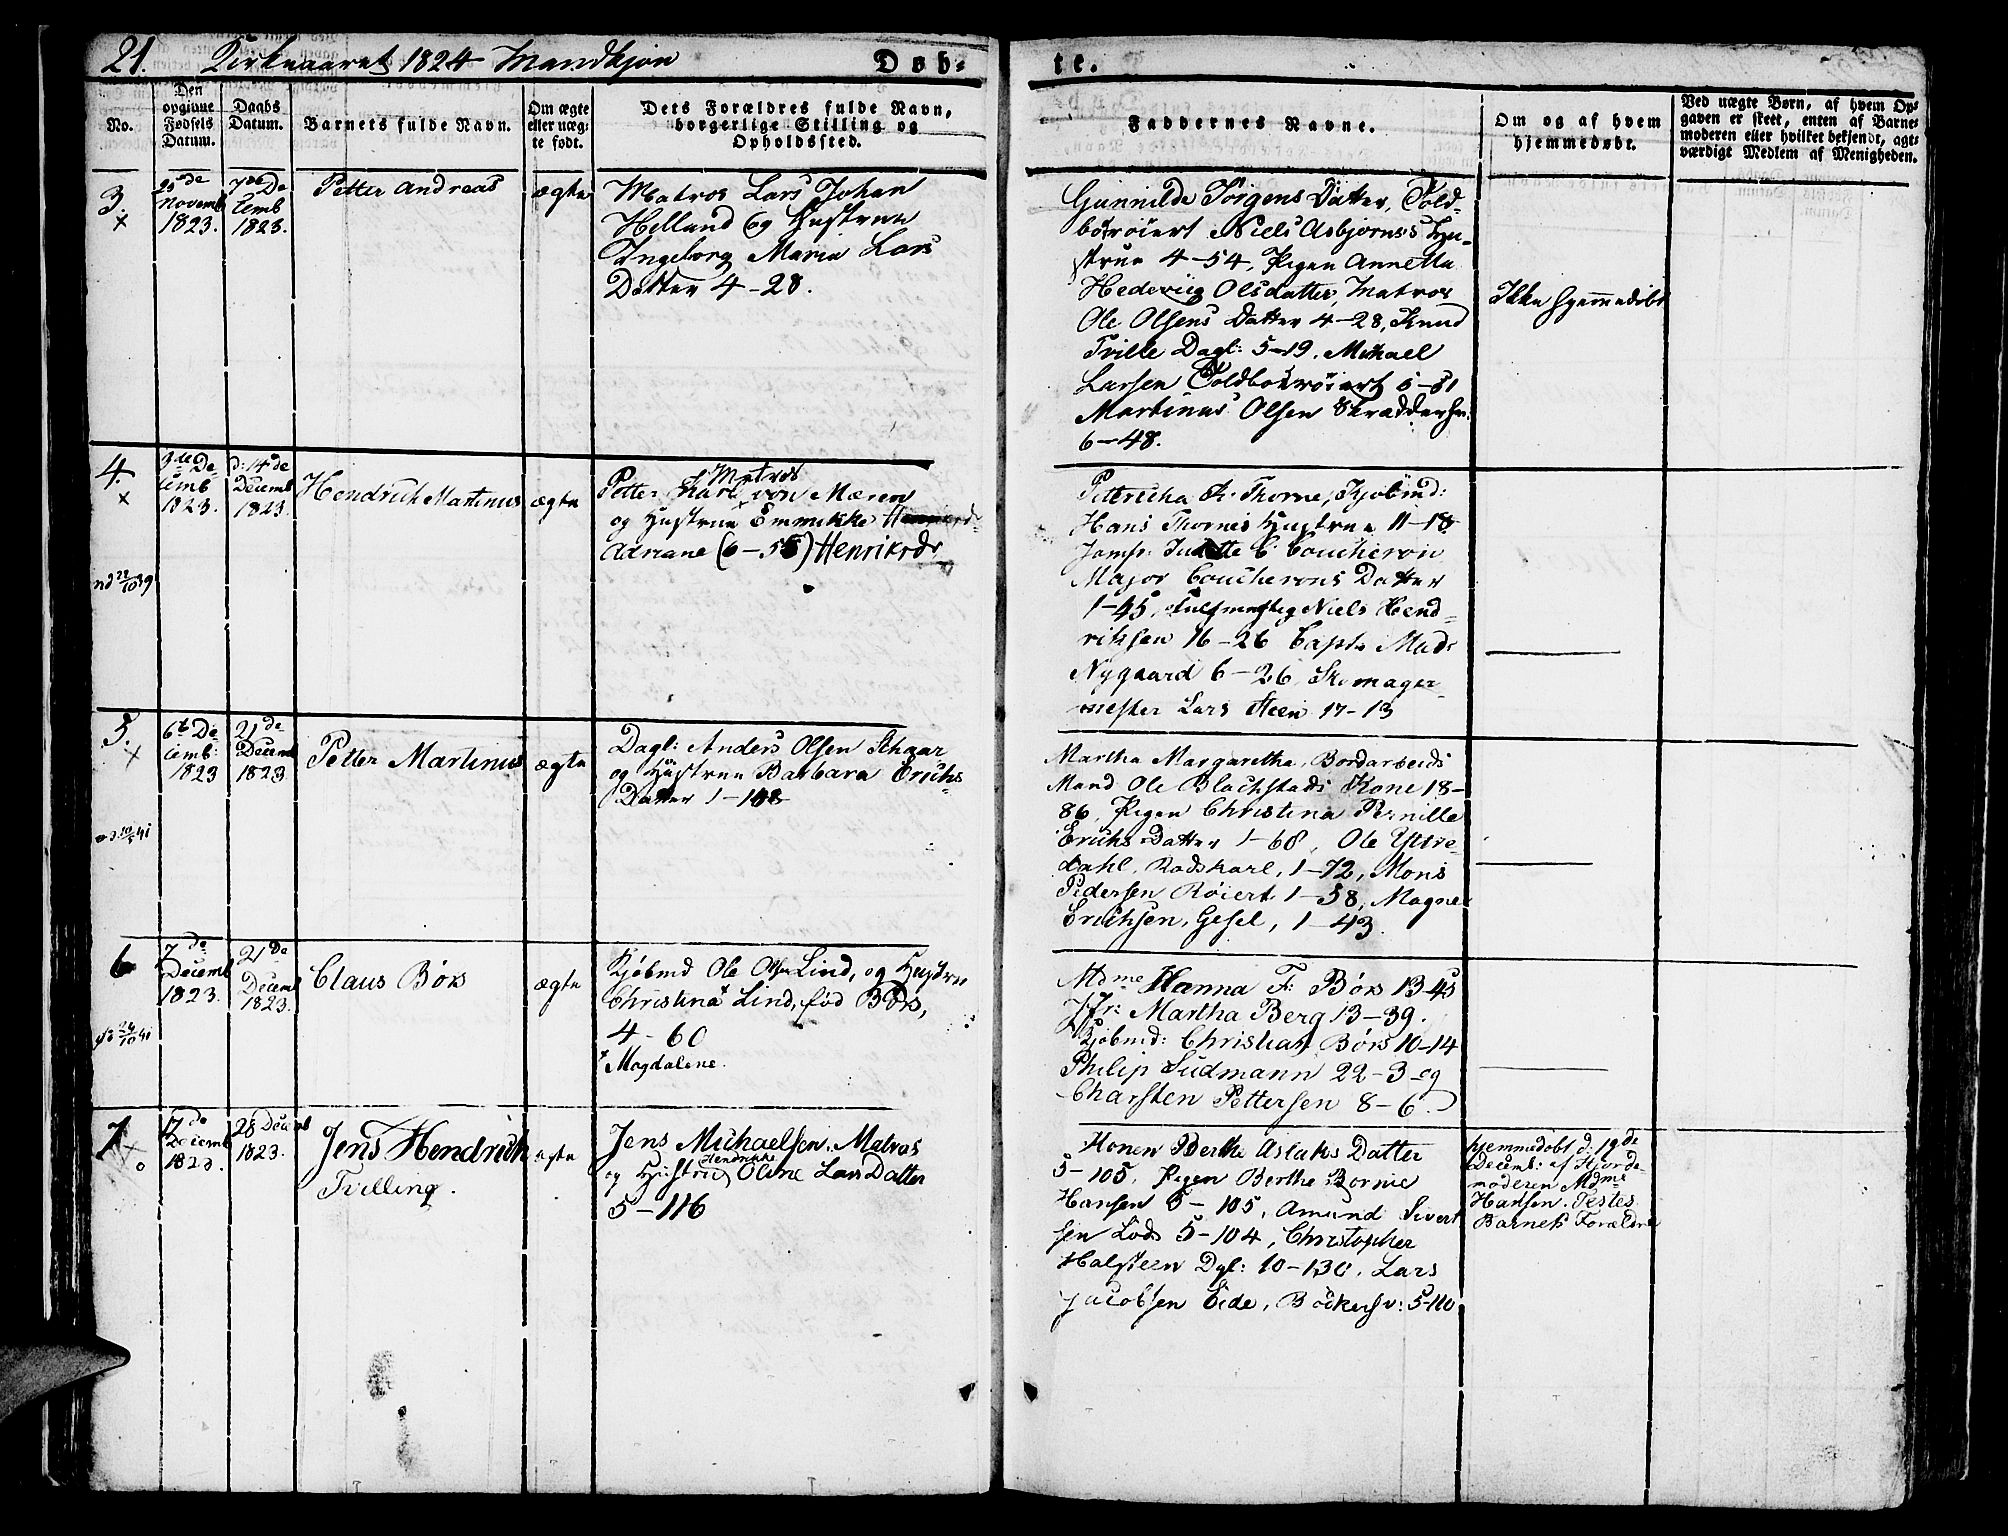 21. Kirkeaaret 1824 Mandkjøn
Døb-
te.
No.
Den
opgivne
Fødsels
Datum.
Daabs
Datum.
Barnets fulde Navn.
Om ægte
eller uæg-
te født.
Dets Forældres fulde Navn,
borgerlige Stilling og
Opholdssted.
Faddernes Navne.
Om og af hvem
hjemmedøbt.
Ved uægte Børn, af hvem Op-
gaven er skeet, enten af Barne-
moderen eller hvilket bekjendt, agt-
værdigt Medlem af Menigheden.
3.
×
Novemb
1823.
7de De
cemb
1823.
Petter Andreas
ægte
Matros Lars Johan
Helland og Hustrue
Ingeborg Maria Lars
Datter 4-28.
Gunnilde Jörgens Datter, Told-
borøiert Niels Asbjørns Hu-
strue 4-54, Pigen Annette
Hedevig Olsdatter, Matros
Ole Olsens Datter 4-28, Knud
Tville Dagl: 5-19. Michael
Larsen Toldborøiert 5-51
Martinus Olsen Skræddersv:
6-48.
Ikke hjemmedöbt
4.
×
3de De-
cemb
1823.
d: 14de
Decemb
1823.
Hendrich Martinus
ægte
Matros
Petter von Mæren
og Hustrue Emmikke
Adriane (6-58) Henriksdr
nd 22/10 39
Petricha K. Thorne, Kjöbmd:
Hans Thornes Hustrue 11-18
Jomfr: C. Coucheron
Major Coucherons Datter
1-45, Fulmægtig Niels Hend-
riksen 16-26 Capt. Mads
Nygaard 6-26, Skomager-
mester Lars Steen 17-13
5.
×
6te De-
cemb:
1823
21de
Decemb
1823.
Petter Martinus
ægte
Dagl: Anders Olsen Skaar
og Hustrue Barbara Erichs
Datter 1-108
Martha Margaretha, Bordarbeids
Mand Ole Blachstads Kone 18-
86, Pigen Christina Pernille
Erichs Datter 1-68, Ole Ystre-
dahl, Rodskarl, 1-72, Mons
Pedersen Røiert 1-58, Magne
Erichsen, Gesel, 1-43.
6
7de
Decemb
1823.
21de
Decemb
1823.
Claus Börs
ægte
Kjöbmd Ole Olsen Lind, og Hustru
Christina* Lind, föd Börs,
4-60
* Magdalene.
Mdme Hanna F: Börs 13-45
Jfr: Martha Berg 13-39.
Kjöbmd: Christian Börs 10-14
Philip Sudmann 22-3 og
Charsten Pettersen 8-6.
7
17de
Decemb
1823.
28 Decemb
1823.
Jens Hendrich
Tvilling.
ægte
Jens Michaelsen, Matros
Hendrikke
og Hustrue Oline LarsDatter
5-116
Konen Berthe Aslaks Datter
5-105, Pigen Berthe Dorthe
Hansen 5-105, Amund Sivert
sen Lods 5-104, Christopher
Halsteen Dgl: 10-130, Lars
Jacobsen Eide, Bödkersv: 5-110
hjemmedöbt d: 19de
Decemb: af Hjorde-
moderen Mdme
Hansen. Testes
Barnets Forældre